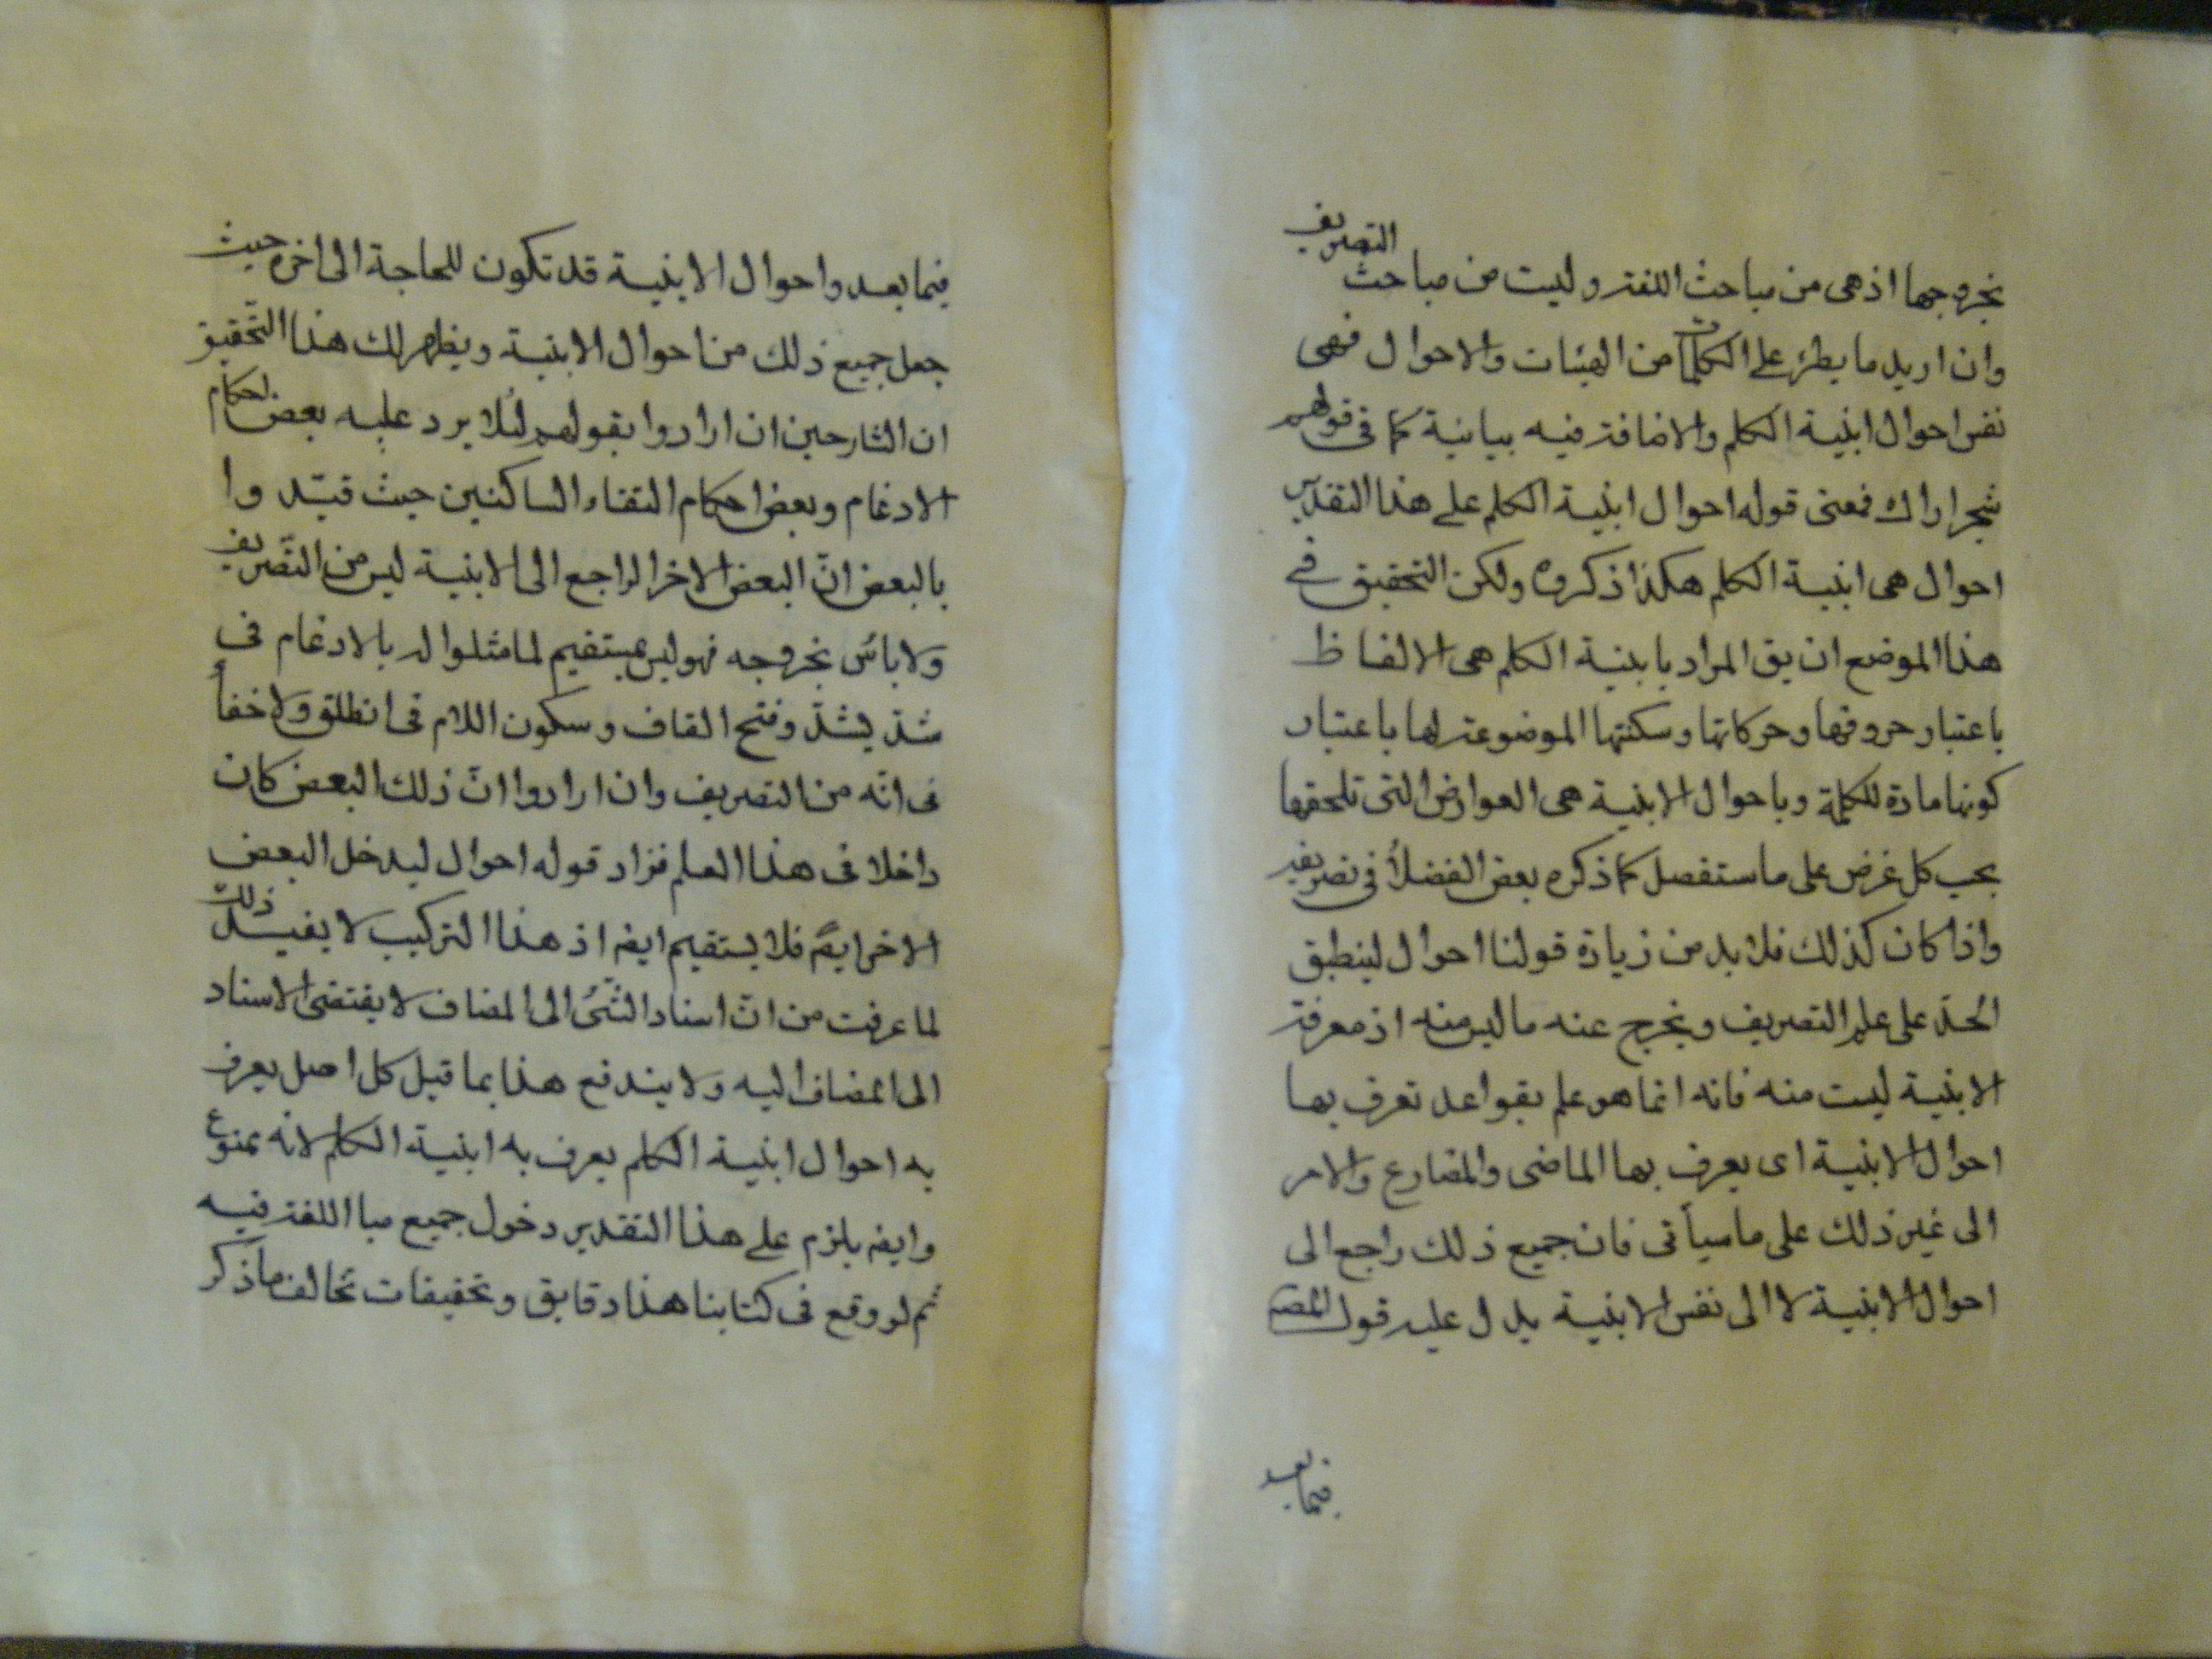 بخروجها اذ هى من مباحث اللغة وليست من مباحث التصريف
وان اريد ما يطرء على الكلمات من الهيئات والاحوال فهى
نفس احوال ابنية الكلم والاضافة فيه بيانية كما فى قولهم
شجر اراك فمعنى قوله احوال ابنية الكلم على هذا التقدير
احوال هى ابنية الكلم هكذا ذكروه ولكن التحقيق في
هذا الموضع ان يق المراد بابنية الكلم هى الالفاظ
باعتبار حروفها وحركاتها وسكنتها الموضوعة لها باعتبار
كونها مادة للكلمة وباحوال الابنية هى العوارض التى تلحقها
بحسب كل غرض على ما ستفصل كما ذكره بعض الفضلأ فى تصريفه
واذا كان كذلك فلا بد من زيادة قولنا احوال لينطبق
الحدّ على علم التصريف ويخرج عنه ما ليس منه اذ معرفة
الابنية ليست منه فانه انما هو علم بقواعد تعرف بها
احوال الابنية اى يعرف بها الماضى والمضارع والامر
الى غير ذلك على ما سيأتى فان جميع ذلك راجع الى
احوال الابنية لا الى نفس الابنية يدل عليه قول المصہ
فيما بعد
فيما بعد واحوال الابنية قد تكون للحاجة الى اخره حيث
جعل جميع ذلك من احوال الابنية ويظهر لك هذا التّحقيق
ان الشارحين ان ارادوا بقولهم لئلا يرد عليه بعض احكام
الادغام وبعض احكام التقاء الساكنين حيث قيّدوا
بالبعض انّ البعض الاخر الراجع الى الابنية ليس من التّصريف
ولا باس بخروجه فهو ليس بمستقيم لما مثلوا له بالادغام فى
شدّ يشدّ وفتح القاف وسكون اللام فى انطلق ولا خفأ
فى انّه من التصريف وان ارادوا انّ ذلك البعض كان
داخلا فى هذا العلم فزاد قوله احوال ليدخل البعض
الاخر ايضً فلا يستقيم ايضہ اذ هذا التركيب لا يفيد ذلك
لما عرفت من انّ اسناد الشّئ الى المضاف لا يقتضى الاسناد
الى المضاف اليه ولا يندفع هذا بما قيل كل اصل يعرف
به احوال ابنية الكلم يعرف به ابنية الكلم لانه ممنوع
وايضہ يلزم على هذا التقدير دخول جميع مبا اللغة فيه
ثم لو وقع فى كتابنا هذا دقايق وتحقيقات تخالف ما ذكر